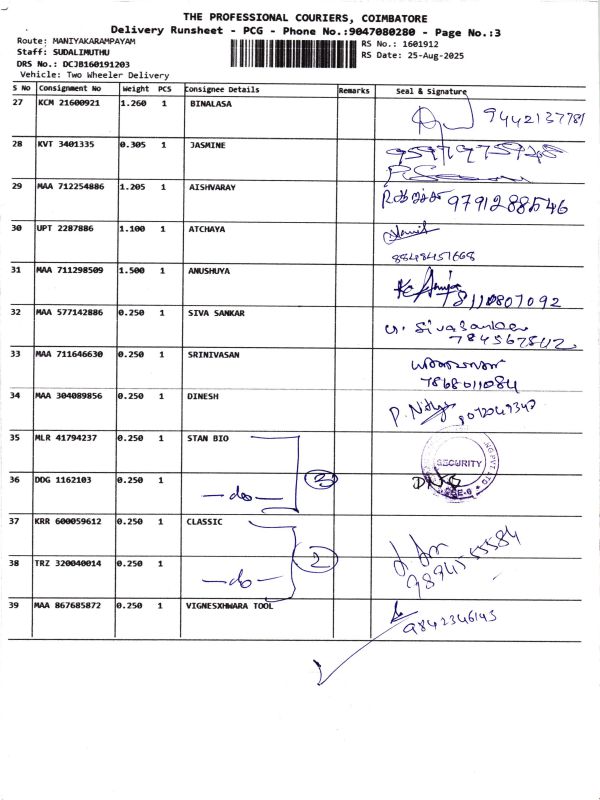 THE PROFESSIONAL COURIERS, COIMBATORE
Delivery Runsheet - PCG - Phone No.:9047080280 - Page No.:3
Route: MANIYAKARAMPAYAM
RS No.: 1601912
Staff: SUDALIMUTHU
RS Date: 25-Aug-2025
DRS No.: DCJB160191203
Vehicle: Two Wheeler Delivery
S No Consignment No Weight PCS Consignee Details Remarks Seal & Signature
27 KCM 21600921 1.260 1 BINALASA 9442137781
28 KVT 3401335 0.305 1 JASMINE
29 MAA 712254886 1.205 1 AISHVARAY 9791288546
30 UPT 2287886 1.100 1 ATCHAYA
8848451668
31 MAA 711298509 1.500 1 ANUSHUYA
78110807092
32 MAA 577142886 0.250 1 SIVA SANKAR
33 MAA 711646630 0.250 1 SRINIVASAN
7868011084
34 MAA 304089856 0.250 1 DINESH
35 MLR 41794237 0.250 1 STAN BIO
SECURITY
36 DDG 1162103 0.250 1 -do- 3
37 KRR 600059612 0.250 1 CLASSIC
38 TRZ 320040014 0.250 1 -do- 2 9894555584
39 MAA 867685872 0.250 1 VIGNESXHWARA TOOL 9842346143